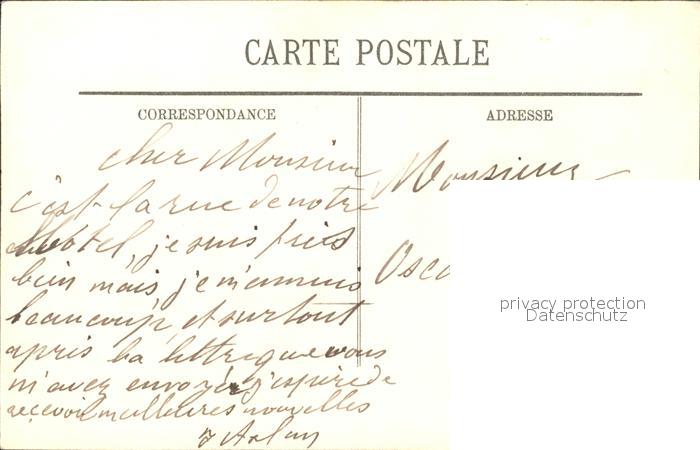 CARTE POSTALE
CORRESPONDANCE
ADRESSE
cher Monsieur
c'est la rue de notre
Hôtel, je suis très
bien mais, je m'ennuis
beaucoup, et surtout
après la lettre que vous
m'avez envoyér j'espère de
recevoir meilleures nouvelles
Monsieur
Osca
privacy protection
Datenschutz